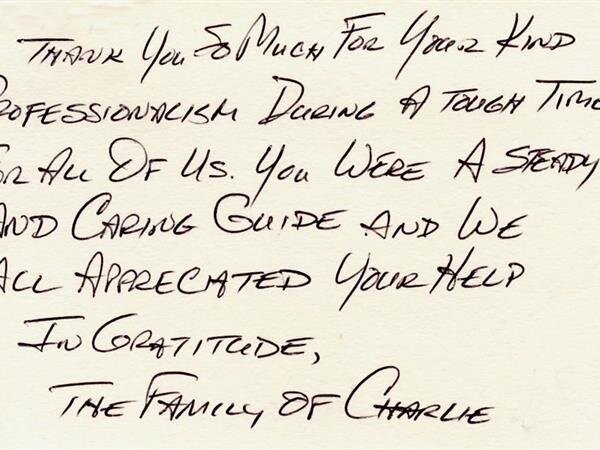 Thank You So Much For Your Kind
Professionalism During A Tough Time
For All Of Us. You Were A Steady
And Caring Guide And We
All Appreciated Your Help
In Gratitude,
The Family Of Charlie